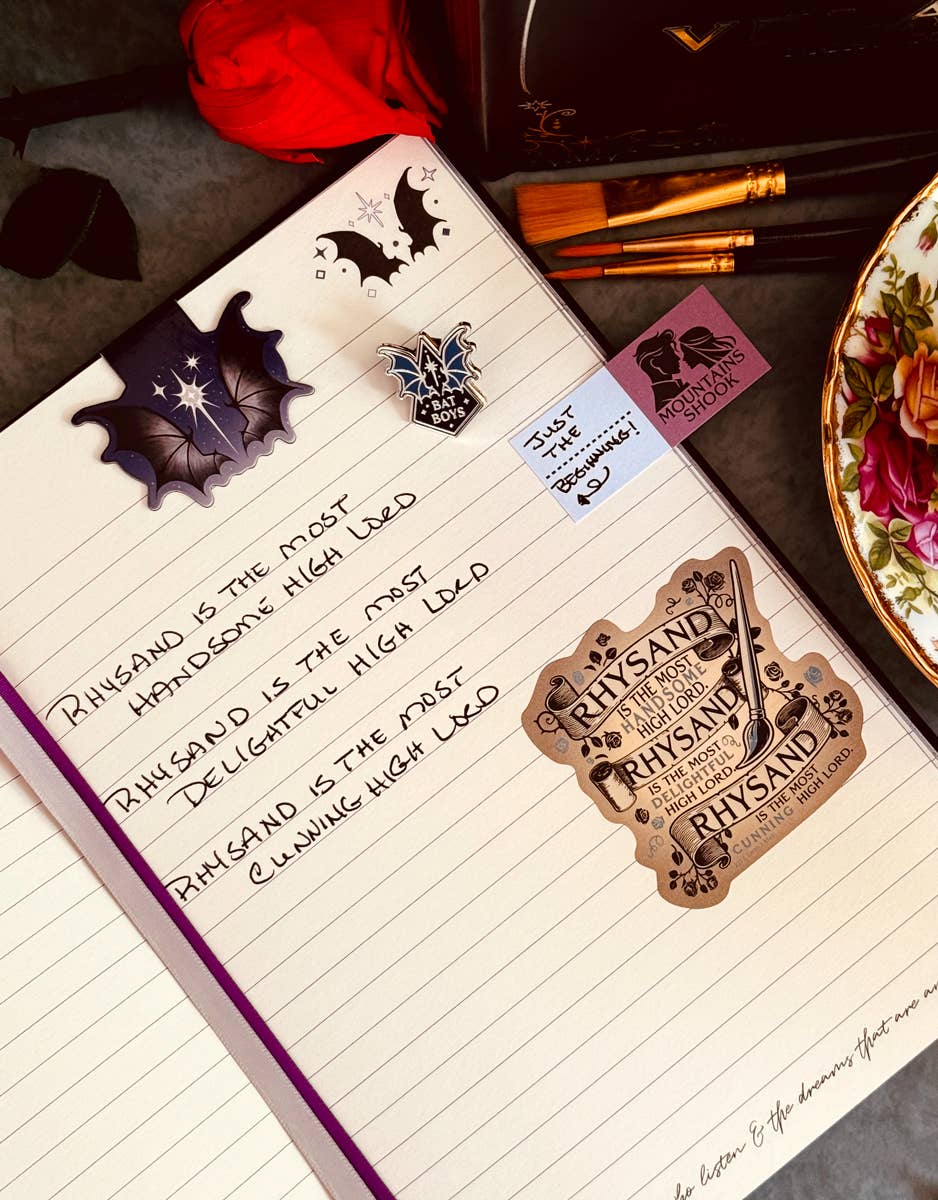 BAT
BOYS
MOUNTAINS
SHOOK
JUST
THE
BEGINNING!
RHYSAND IS THE MOST
HANDSOME HIGH LORD
RHYSAND IS THE MOST
DELIGHTFUL HIGH LORD
RHYSAND IS THE MOST
CUNNING HIGH LORD
RHYSAND
IS THE MOST
HANDSOME
HIGH LORD.
RHYSAND
IS THE MOST
DELIGHTFUL
HIGH LORD.
RHYSAND
IS THE MOST
CUNNING HIGH LORD.
listen & the dreams that are